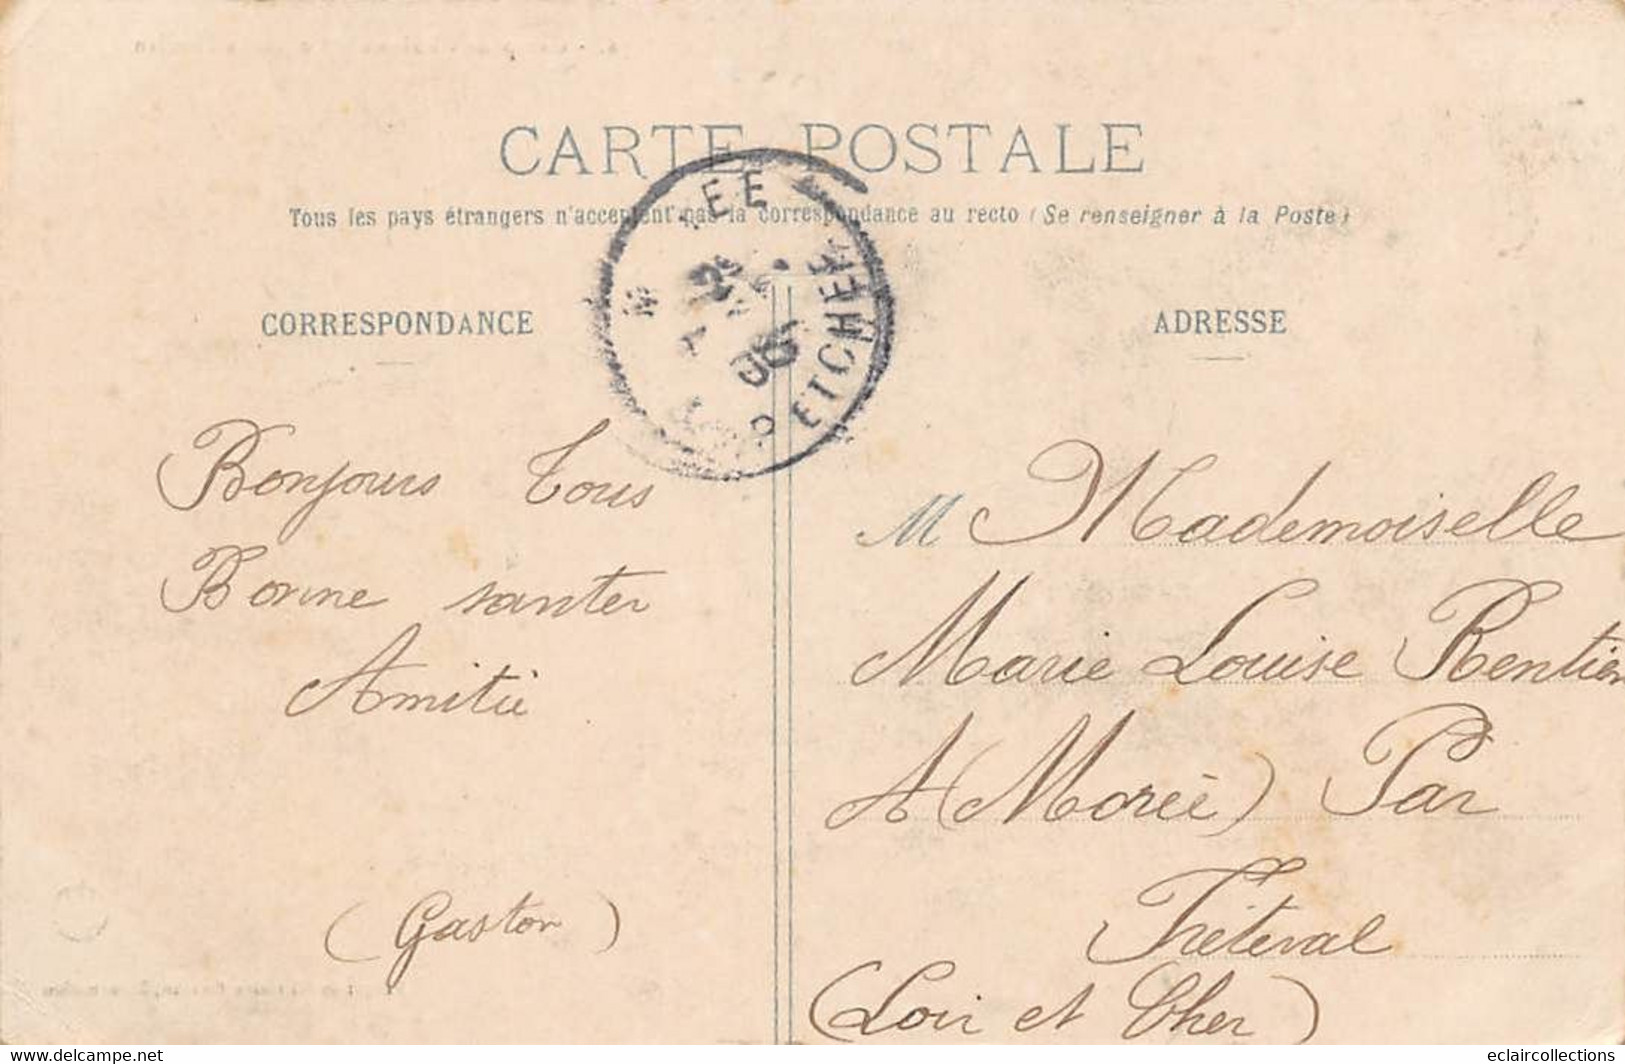 CARTE POSTALE
Tous les pays étrangers n'acceptent pas la correspondance au recto (Se renseigner à la Poste)
CORRESPONDANCE
ADRESSE
ET CHER
Bonjours Tous
Bonne santer
Amitié
(Gaston)
M Mademoiselle
Marie Louise Rentien
A (Morée) Par
Fréteval
(Loir et Cher)
www.delcampe.net
eclaircollections